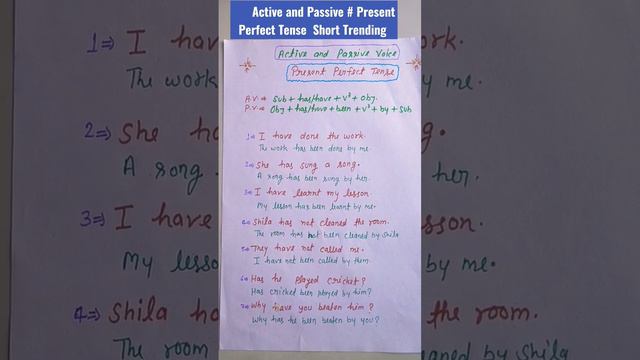 Active and Passive # Present
Perfect Tense Short Trending
Active and Passive Voice
Present Perfect Tense
A.V. ⇒ Sub + has/have + V³ + Obj.
P.V. ⇒ Obj + has/have + been + V³ + by + Sub
1⇒ I have done the work.
The work has been done by me.
2⇒ She has sung a song.
A song has been sung by her.
3⇒ I have learnt my lesson.
My lesson has been learnt by me.
4⇒ Shila has not cleaned the room.
The room has not been cleaned by Shila
5⇒ They have not called me.
I have not been called by them.
6⇒ Has he played cricket?
Has cricked been played by him?
7⇒ Why have you beaten him?
Why has he been beaten by you?
1⇒ I have
work.
The work
by me.
2⇒ She has
A song
her.
3⇒ I have
sson.
My lesso
me.
4⇒ Shila ha
the room.
The room
by Shila